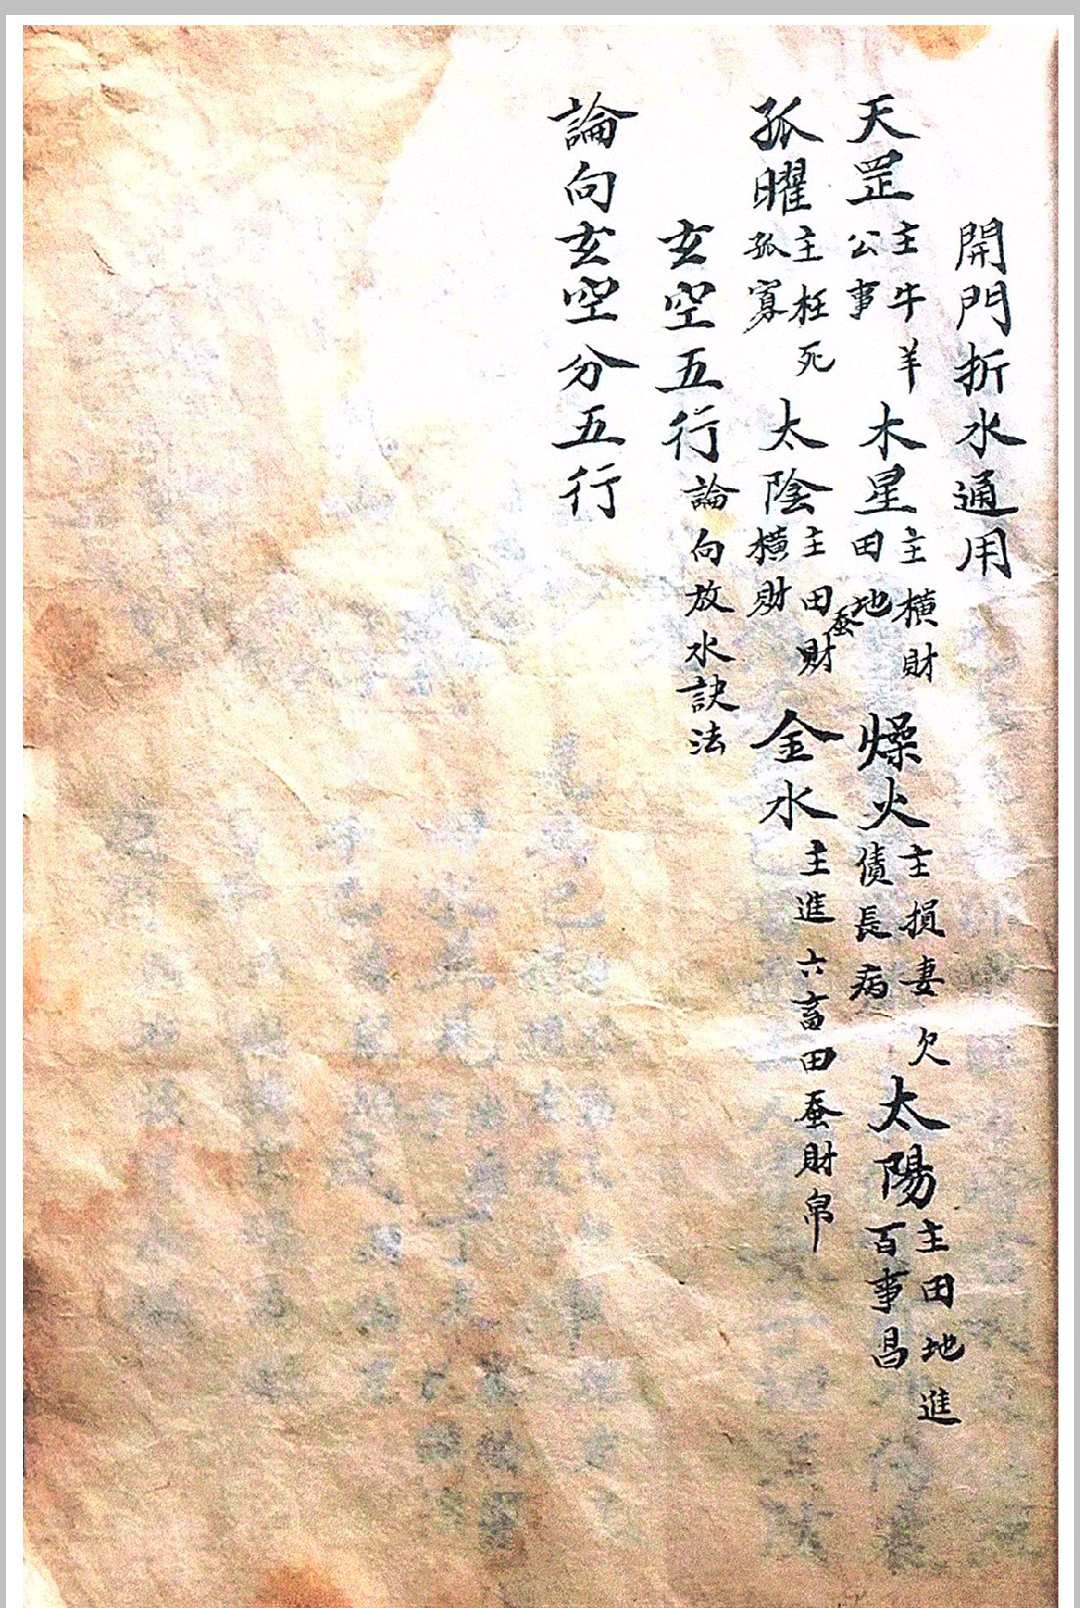 開門折水通用
天罡主牛羊公事 木星主橫財田地 燥火主損妻欠債長病 太陽主田地進百事昌
孤曜主枉死孤寡 太陰主田蚕財橫財 金水主進六畜田蚕財帛
玄空五行論向放水訣法
論向玄空分五行